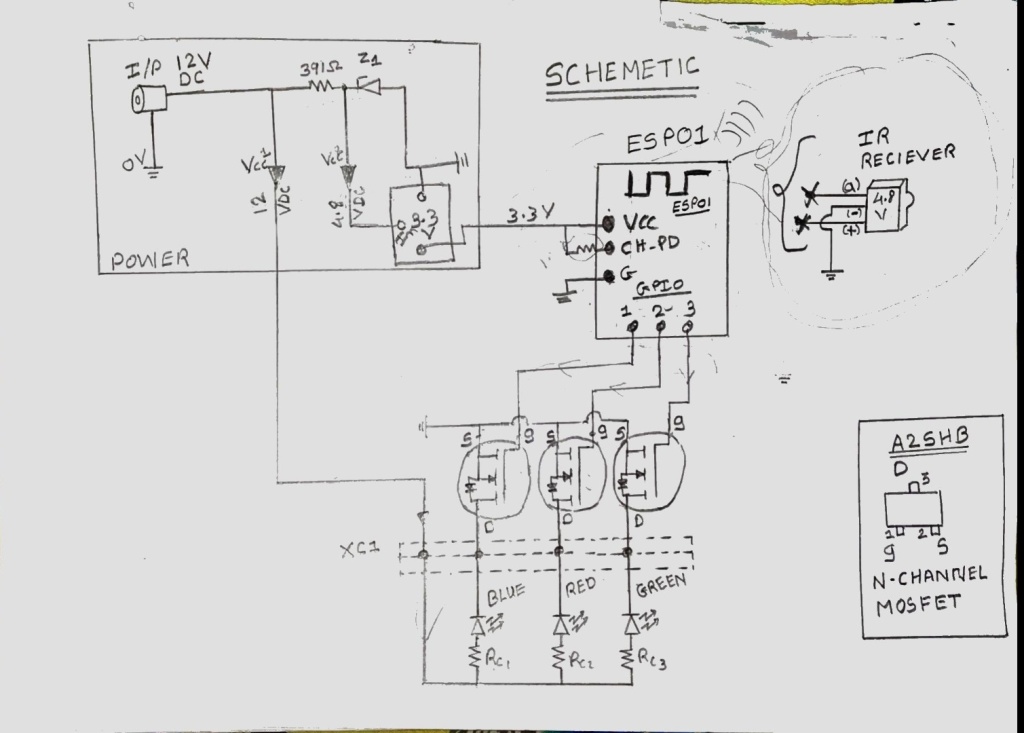 SCHEMETIC
I/P 12V
DC
391Ω
Z1
0V
Vcc1
12 VDC
Vcc2
4.8 VDC
3.3
V
POWER
3.3V
ESP01
ESP01
VCC
CH-PD
G
GPIO
1 2 3
IR
RECIEVER
(a)
(-)
(+)
4.8
V
S g S g S g
D D D
XC1
BLUE RED GREEN
RC1 RC2 RC3
A2SHB
D
3
1 2
g S
N-CHANNEL
MOSFET